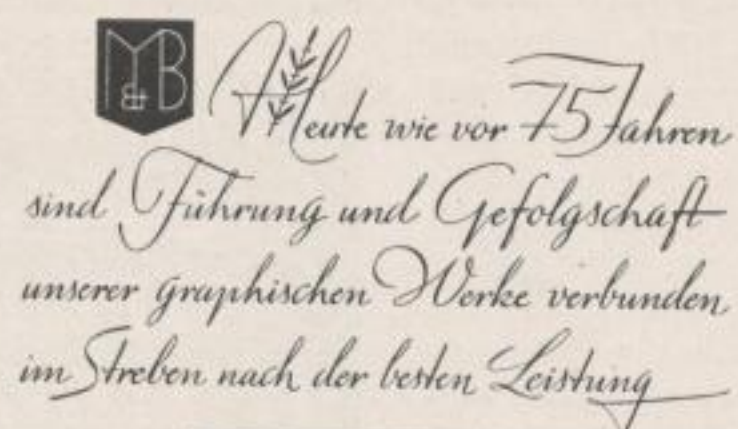 M&B
Heute wie vor 75 Jahren
sind Führung und Gefolgschaft
unserer graphischen Werke verbunden
im Streben nach der besten Leistung